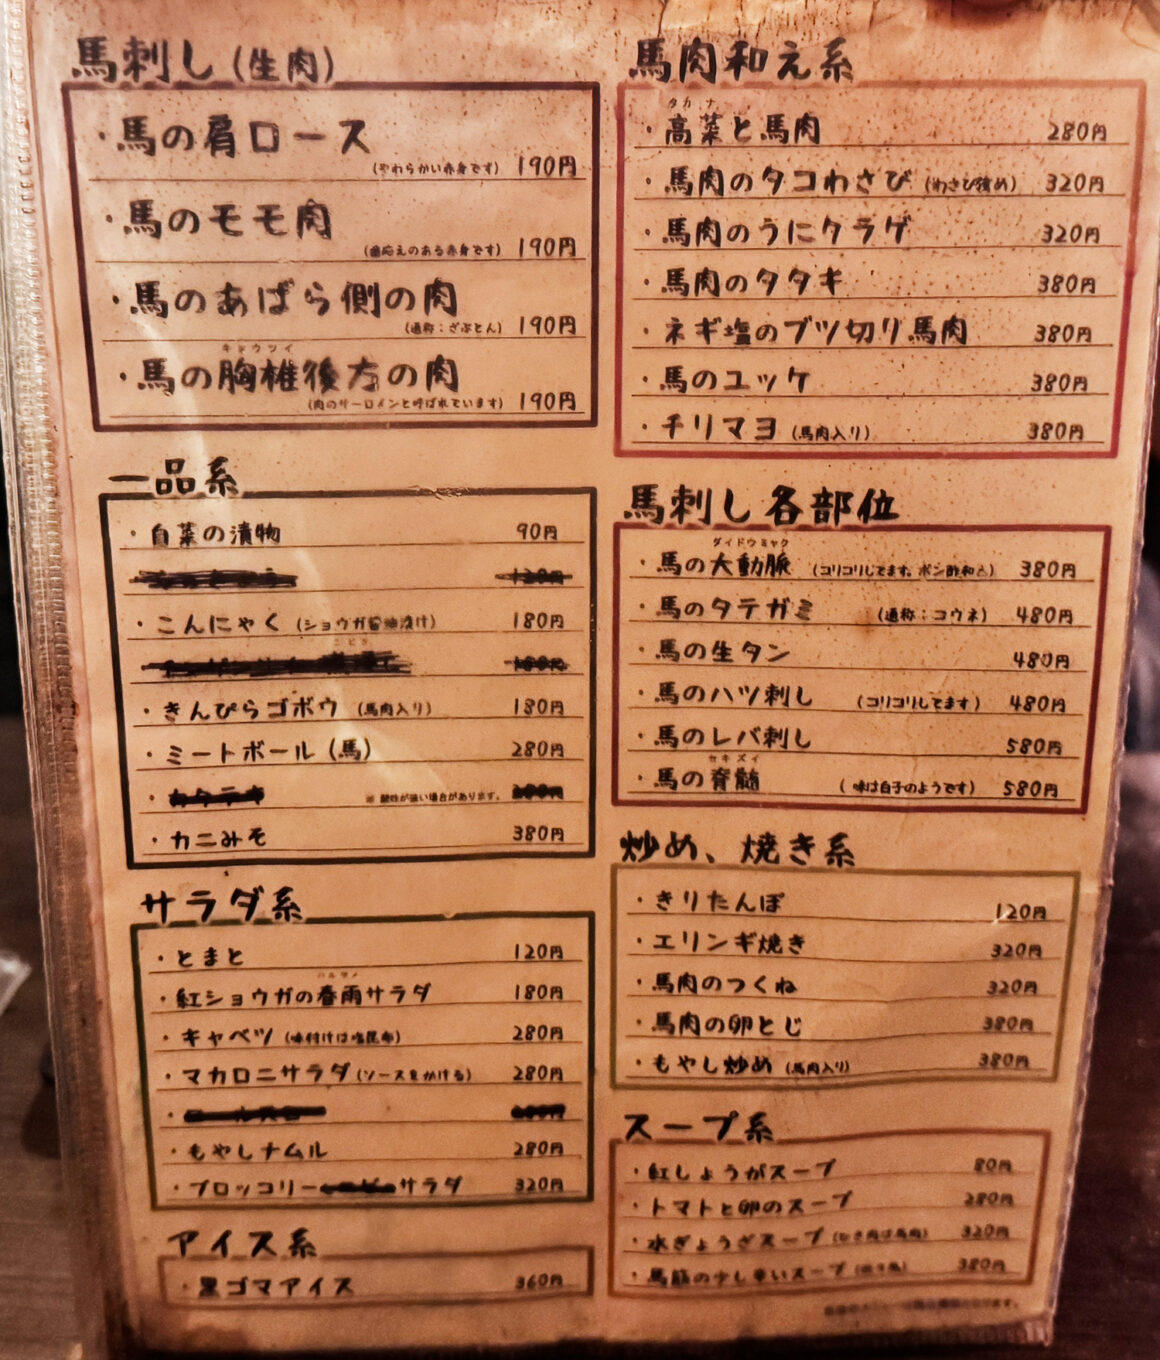 馬刺し(生肉)
・馬の肩ロース
(やわらかい赤身です) 190円
・馬のモモ肉
(歯応えのある赤身です) 190円
・馬のあばら側の肉
(通称:ざぶとん) 190円
キョウツイ
・馬の胸椎後方の肉
(肉のサーロインと呼ばれています) 190円
一品系
・白菜の漬物 90円
・こんにゃく (ショウガ醤油漬け) 180円
・きんぴらゴボウ (馬肉入り) 180円
・ミートボール(馬) 280円
※ 酸味が強い場合があります。
・カニみそ 380円
サラダ系
・とまと 120円
ハルサメ
・紅ショウガの春雨サラダ 180円
・キャベツ (味付けは塩昆布) 280円
・マカロニサラダ(ソースをかける) 280円
・もやしナムル 280円
・ブロッコリー サラダ 320円
アイス系
・黒ゴマアイス 360円
馬肉和え系
タカナ
・高菜と馬肉 280円
・馬肉のタコわさび (わさび強め) 320円
・馬肉のうにクラゲ 320円
・馬肉のタタキ 380円
・ネギ塩のブツ切り馬肉 380円
・馬のユッケ 380円
・チリマヨ (馬肉入り) 380円
馬刺し各部位
ダイドウミャク
・馬の大動脈 (コリコリしてます。ポン酢和え) 380円
・馬のタテガミ (通称:コウネ) 480円
・馬の生タン 480円
・馬のハツ刺し (コリコリしてます) 480円
・馬のレバ刺し 580円
セキズイ
・馬の脊髄 (味は白子のようです) 580円
炒め、焼き系
・きりたんぽ 120円
・エリンギ焼き 320円
・馬肉のつくね 320円
・馬肉の卵とじ 380円
・もやし炒め (馬肉入り) 380円
スープ系
・紅しょうがスープ 80円
・トマトと卵のスープ 280円
・水ぎょうざスープ 320円
・馬筋の少し辛いスープ 380円